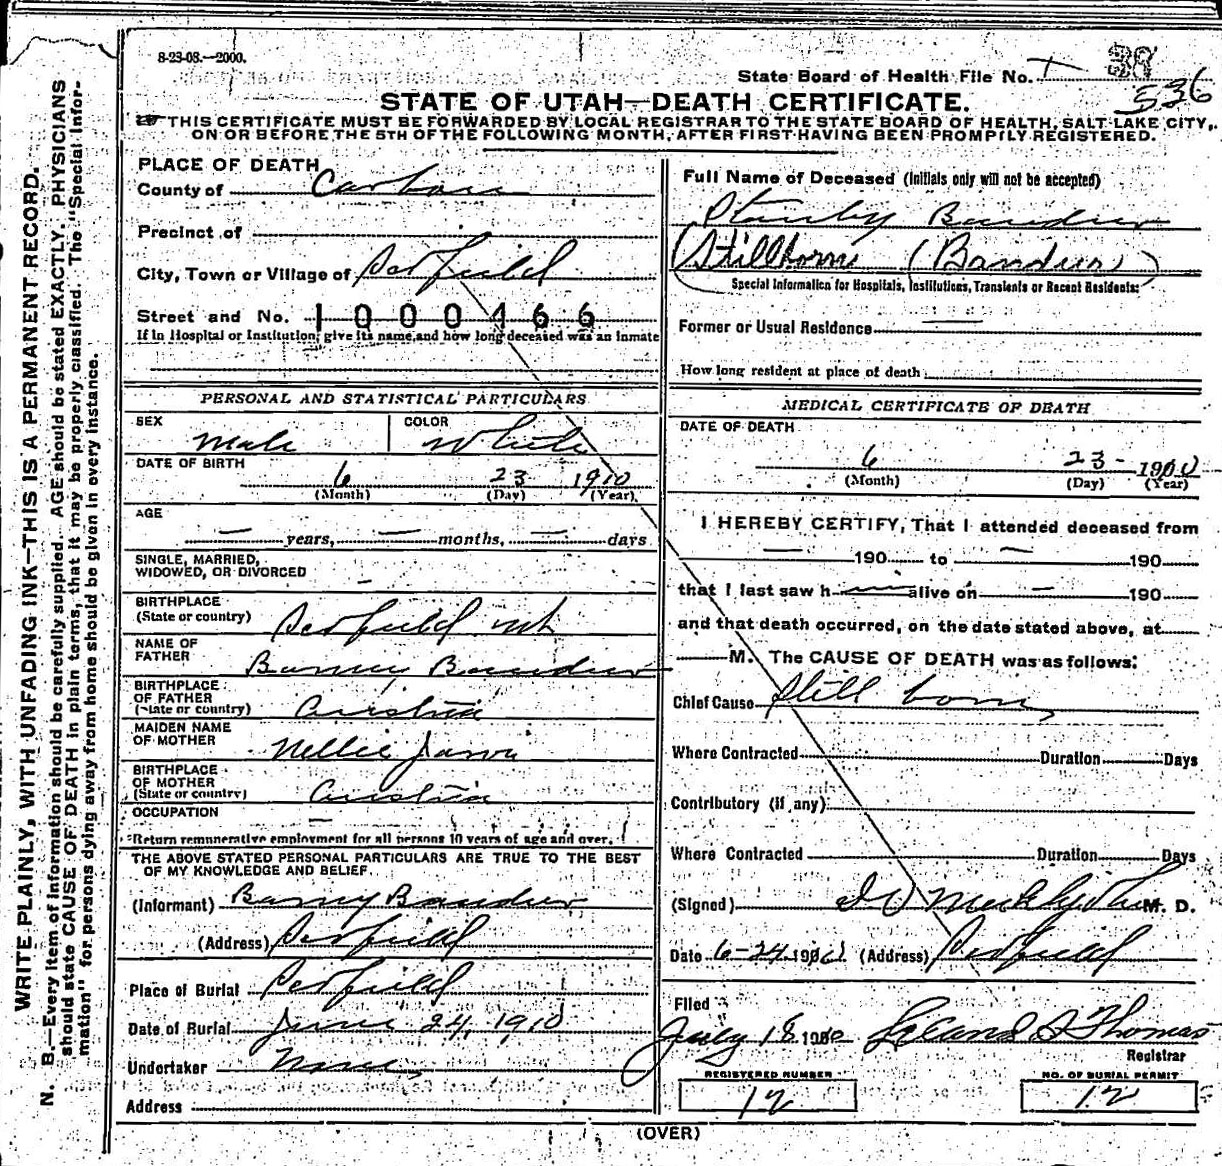 8-23-08.—2000.
State Board of Health File No. 39
536
STATE OF UTAH—DEATH CERTIFICATE.
THIS CERTIFICATE MUST BE FORWARDED BY LOCAL REGISTRAR TO THE STATE BOARD OF HEALTH, SALT LAKE CITY,
ON OR BEFORE THE 5TH OF THE FOLLOWING MONTH, AFTER FIRST HAVING BEEN PROMPTLY REGISTERED.
WRITE PLAINLY, WITH UNFADING INK—THIS IS A PERMANENT RECORD.
N. B.—Every item of information should be carefully supplied. AGE should be stated EXACTLY. PHYSICIANS
should state CAUSE OF DEATH in plain terms, that it may be properly classified. The "Special Infor-
mation" for persons dying away from home should be given in every instance.
PLACE OF DEATH
County of Carbon
Precinct of
City, Town or Village of Scofield
Street and No. 1000466
If in Hospital or Institution, give its name and how long deceased was an inmate
PERSONAL AND STATISTICAL PARTICULARS
SEX Male COLOR White
DATE OF BIRTH 6 23 1910
(Month) (Day) (Year)
AGE
— years, — months, — days
SINGLE, MARRIED,
WIDOWED, OR DIVORCED —
BIRTHPLACE
(State or country) Scofield Ut
NAME OF
FATHER Barney Bandur
BIRTHPLACE
OF FATHER
(State or country) Austria
MAIDEN NAME
OF MOTHER Nellie
BIRTHPLACE
OF MOTHER
(State or country) Austria
OCCUPATION —
Return remunerative employment for all persons 10 years of age and over.
THE ABOVE STATED PERSONAL PARTICULARS ARE TRUE TO THE BEST
OF MY KNOWLEDGE AND BELIEF
(Informant) Barney Bandur
(Address) Scofield
Place of Burial Scofield
Date of Burial June 24, 1910
Undertaker None
Address
Full Name of Deceased (Initials only will not be accepted)
Stanley Bandur
(Stillborn (Bandur)
Special Information for Hospitals, Institutions, Transients or Recent Residents:
Former or Usual Residence —
How long resident at place of death
MEDICAL CERTIFICATE OF DEATH
DATE OF DEATH
6 23 1910
(Month) (Day) (Year)
I HEREBY CERTIFY, That I attended deceased from
— 190 to — 190
that I last saw h— alive on — 190
and that death occurred, on the date stated above, at
— M. The CAUSE OF DEATH was as follows:
Chief Cause Still born
Where Contracted Duration Days
Contributory (if any)
Where Contracted Duration Days
(Signed) M. D.
Date 6-24 1910 (Address) Scofield
Filed
July 18 1910 Leland S Thomas
Registrar
REGISTERED NUMBER
12
NO. OF BURIAL PERMIT
12
(OVER)